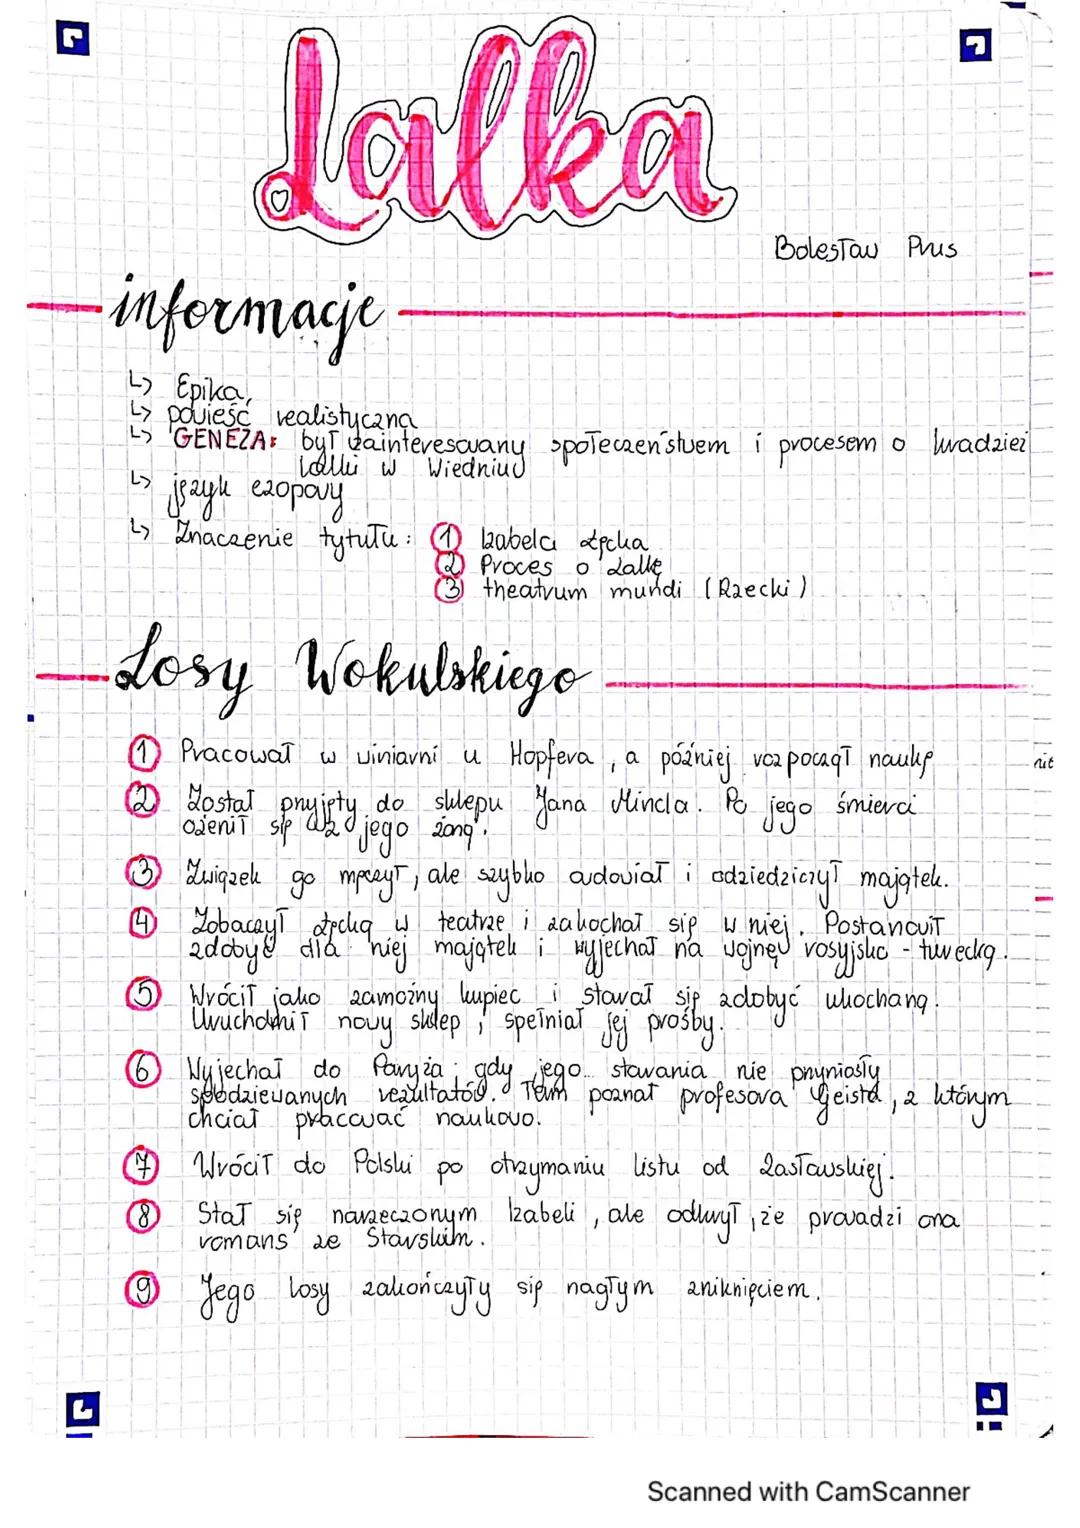 Lalka
Bolesław Prus
informacje
↳ Epika,
↳ powieść realistyczna
↳ GENEZA: był zainteresowany społeczeństwem i procesem o kradzież
lalki w Wiedniu
↳ język ezopowy
↳ Znaczenie tytułu: 1 Izabela Łęcka
2 Proces o lalkę
3 theatrum mundi (Rzecki)
Losy Wokulskiego
1 Pracował w winiarni u Hopfera, a później rozpoczął naukę
2 Został przyjęty do sklepu Jana Mincla. Po jego śmierci
ożenił się z jego żoną.
3 Związek go męczył, ale szybko owdowiał i odziedziczył majątek.
4 Zobaczył Łęcką w teatrze i zakochał się w niej. Postanowił
zdobyć dla niej majątek i wyjechał na wojnę rosyjsko - turecką.
5 Wrócił jako zamożny kupiec i starał się zdobyć ukochaną.
Uruchomił nowy sklep, spełniał jej prośby.
6 Wyjechał do Paryża gdy jego starania nie przyniosły
spodziewanych rezultatów. Tam poznał profesora Geista, z którym
chciał pracować naukowo.
7 Wrócił do Polski po otrzymaniu listu od Zasławskiej.
8 Stał się narzeczonym Izabeli, ale odkrył, że prowadzi ona
romans ze Starskim.
9 Jego losy zakończyły się nagłym zniknięciem.
Scanned with CamScanner